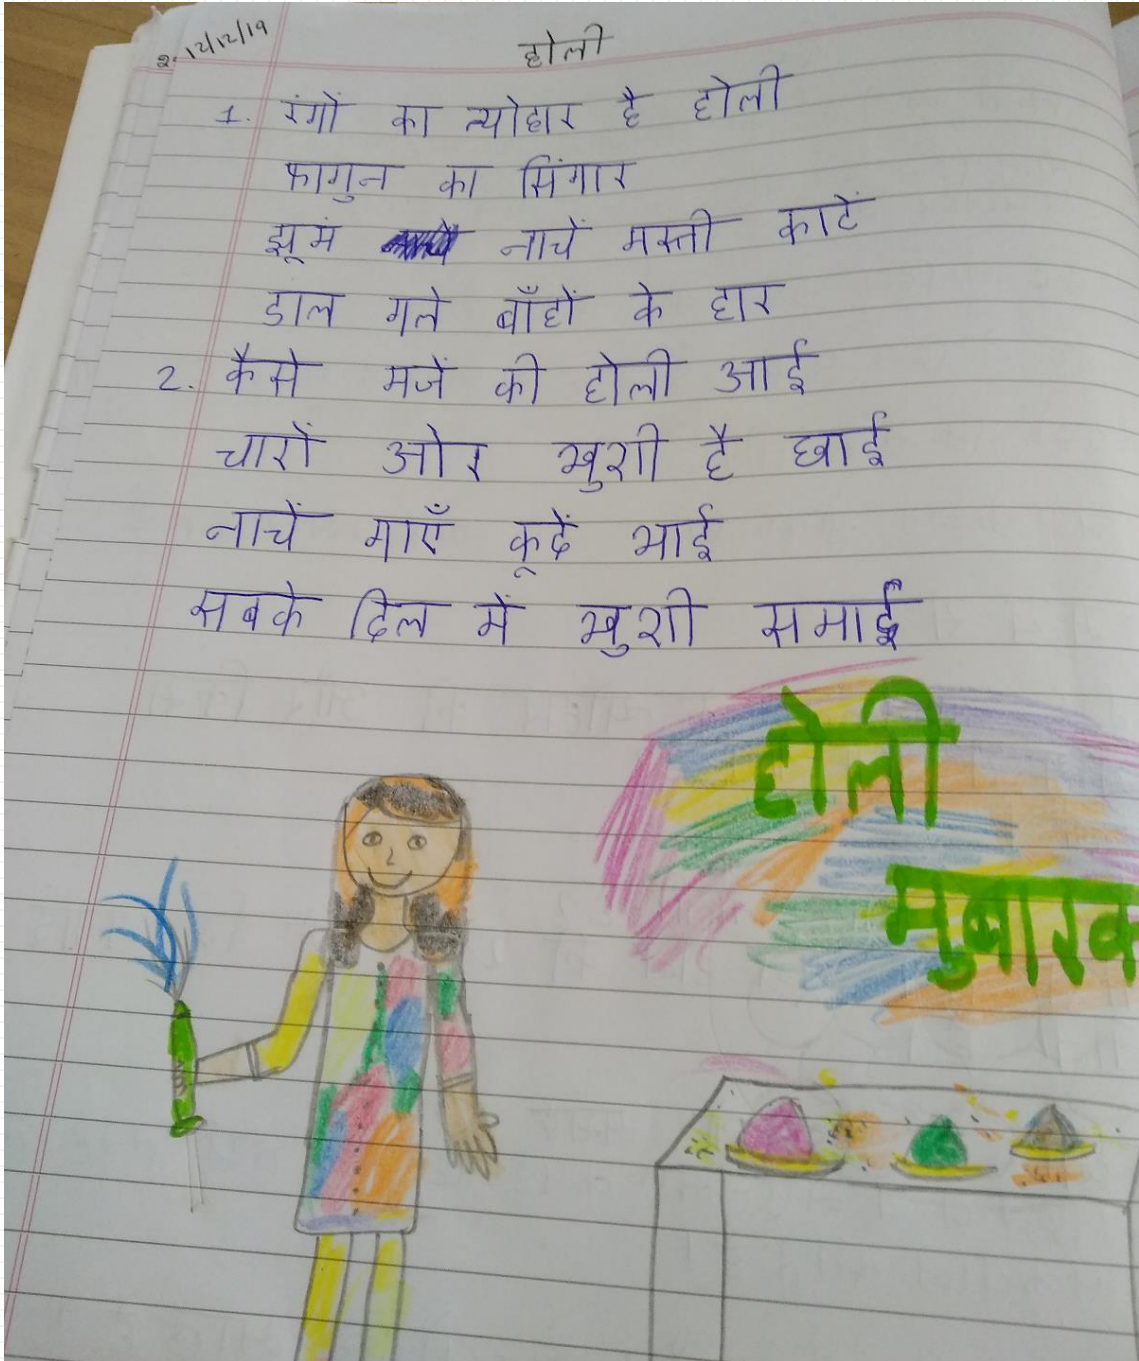 2. 12/12/19
होली
1. रंगों का त्योहार है होली
फागुन का सिंगार
झूमें नाचें मस्ती काटें
डाल गले बाँहों के हार
2. कैसे मजें की होली आई
चारों ओर खुशी है छाई
नाचें गाएँ कूदें भाई
सबके दिल में खुशी समाई
होली
मुबारक